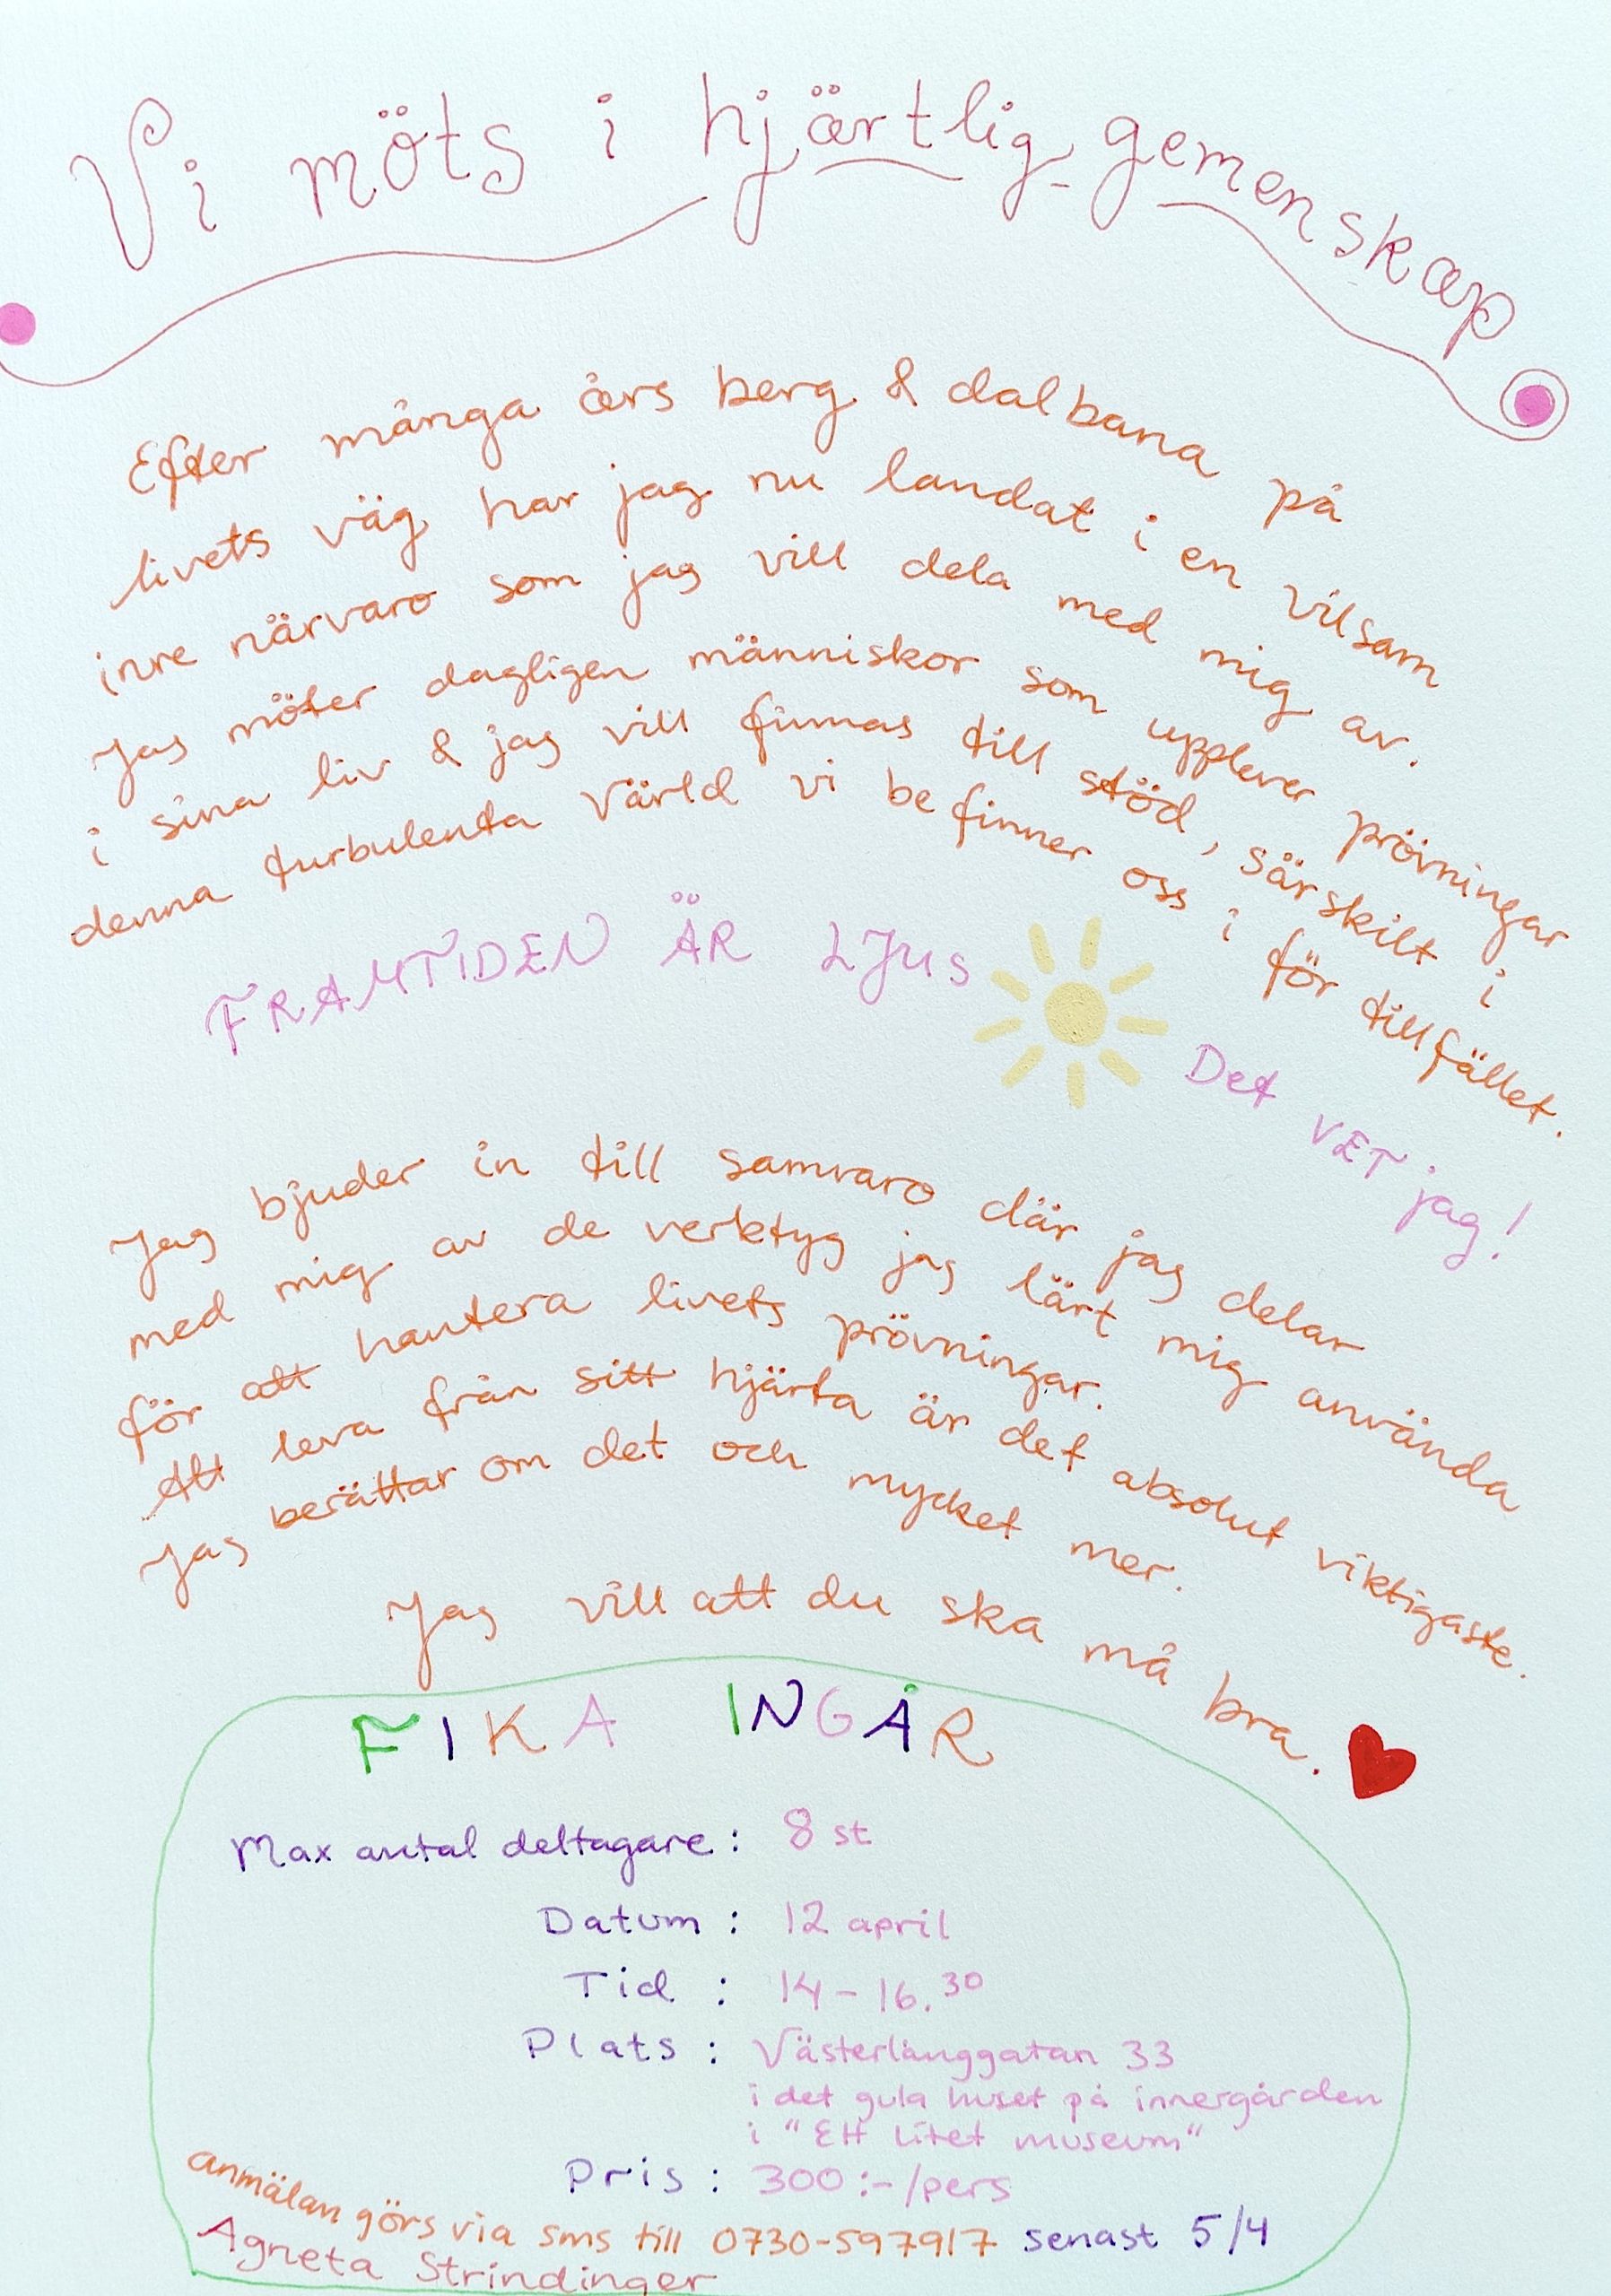 Vi möts i hjärtlig gemenskap
Efter många års berg & dalbana på
livets väg har jag nu landat i en vilsam
inre närvaro som jag vill dela med mig av.
Jag möter dagligen människor som upplever prövningar
i sina liv & jag vill finnas till stöd, särskilt i
denna turbulenta värld vi befinner oss i för tillfället.
FRAMTIDEN ÄR LJUS
Det VET jag!
Jag bjuder in till samvaro där jag delar
med mig av de verktyg jag lärt mig använda
för att hantera livets prövningar.
Att leva från sitt hjärta är det absolut viktigaste.
Jag berättar om det och mycket mer.
Jag vill att du ska må bra.
FIKA INGÅR
Max antal deltagare: 8 st
Datum: 12 april
Tid: 14-16.30
Plats: Västerlånggatan 33
i det gula huset på innergården
i "Ett litet museum"
Pris: 300:-/pers
anmälan görs via sms till 0730-597917 senast 5/4
Agneta Strindinger